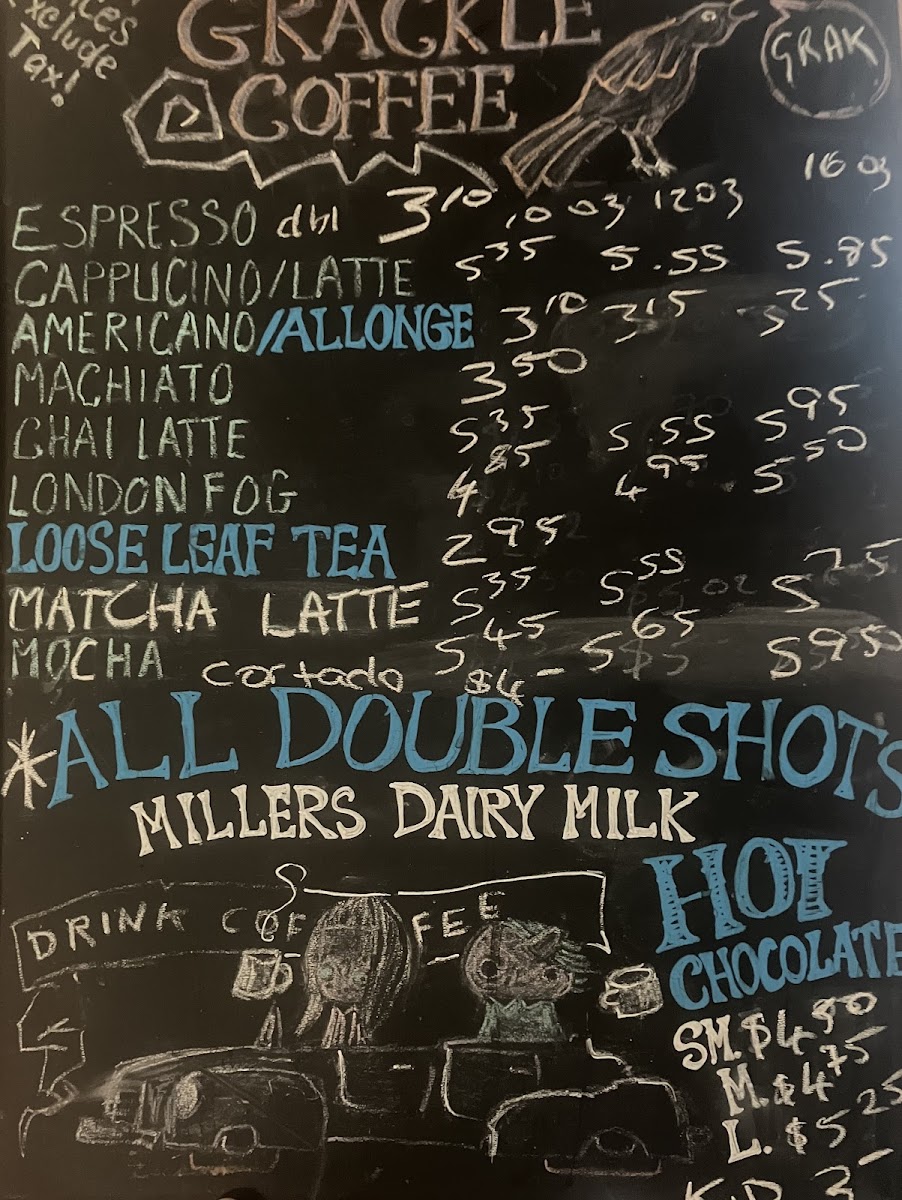 Exclude
Tax!
GRACKLE
COFFEE
GRAK
ESPRESSO dbl 3.10
10 oz 12 oz 16 oz
CAPPUCINO/LATTE 5.35 5.55 5.85
AMERICANO/ALLONGE 3.10 3.15 3.25
MACHIATO 3.50
CHAI LATTE 5.35 5.55 5.95
LONDON FOG 4.85 4.95 5.50
LOOSE LEAF TEA 2.95
MATCHA LATTE 5.35 5.55 5.75
MOCHA 5.45 5.65 5.95
cortado $4-
*ALL DOUBLE SHOTS
MILLERS DAIRY MILK
DRINK COFFEE
HOT
CHOCOLATE
SM. $4
M. $4.75
L. $5.25